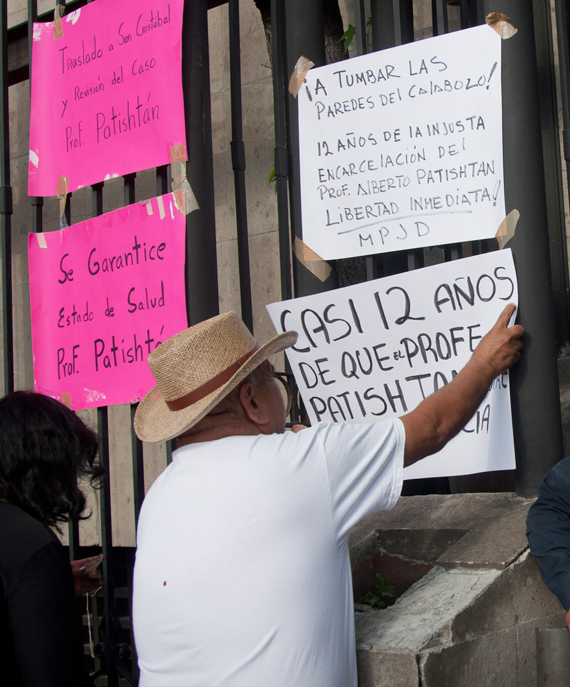 Traslado a San Cristobal
y Revisión del Caso
Prof. Patishtán
¡A TUMBAR LAS
PAREDES DEL CALABOZO!
12 AÑOS DE LA INJUSTA
ENCARCELACIÓN DEL
PROF. ALBERTO PATISHTAN
LIBERTAD INMEDIATA!
MPJD
Se Garantice
Estado de Salud
Prof. Patishtá
CASI 12 AÑOS
DE QUE EL PROFE
PATISHTAN